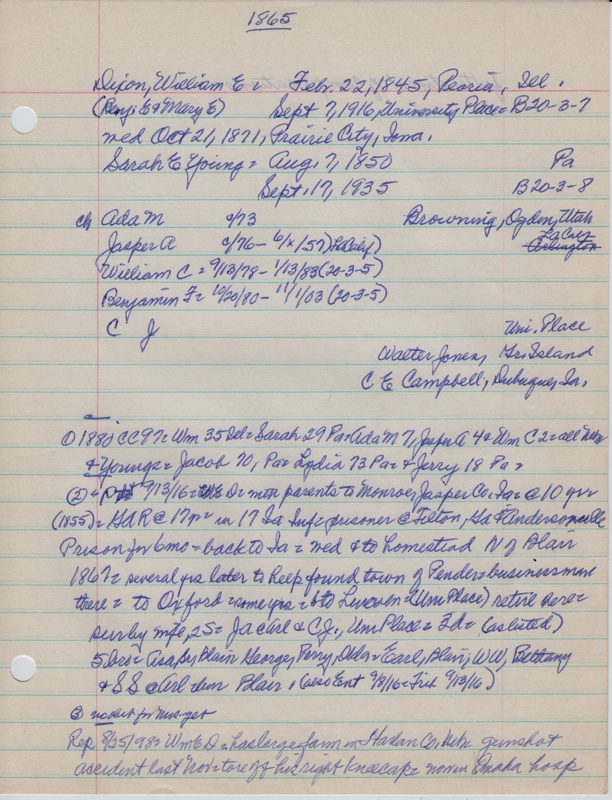 1865
Dixon, William E = Feb. 22, 1845, Peoria, Ill.
(Benj. E & Mary E) Sept 7, 1916, University Place = B20-3-7
wed Oct 21, 1871, Prairie City, Iowa.
Sarah E Young = Aug. 7, 1850 Pa
Sept. 17, 1935 B20-3-8
ch Ada M c/73 Browning, Ogden, Utah
Jasper A c/76 - 6/x/57) La Cruz
Arlington
William C = 9/13/78 - 1/13/83 (20-3-5)
Benjamin F = 10/20/80 - 11/1/03 (20-3-5)
C J Uni. Place
Walter Jones, Gr. Island
C E Campbell, Dubuque, Ia.
① 1880 CC97 = Wm 35 Ill = Sarah 29 Pa = Ada M 7, Jasper A 4 & Wm C 2 = all
& Youngs = Jacob 70, Pa = Lydia 73 Pa = & Jerry 18 Pa =
② 9/13/16 = D = parents to Monroe, Jasper Co. Ia = @ 10 yr
(1855) = GAR @ 17 = in 17 Ia Inf = prisoner @ Tilton, Ga & Andersonville
Prison for 6 mo = back to Ia = wed & to homestead N of Blair
1867 = several yrs later to help found town of Pender = business man
there = to Oxford = some yrs = & to Lincoln = (Uni Place) retire here =
surv by wife, 2S = J & C J., Uni Place = = (as listed)
5 bro = Asa, Blair George, Perry, = Earl, Blair, WW, Bethany
& SS @ Blair, ( 9/8/16 = Fri 9/13/16)
③
Rep 8/25/98 = Wm E D = has large farm in Harlan Co. = gunshot
accident last Nov = tore off his right kneecap = now in Omaha hosp